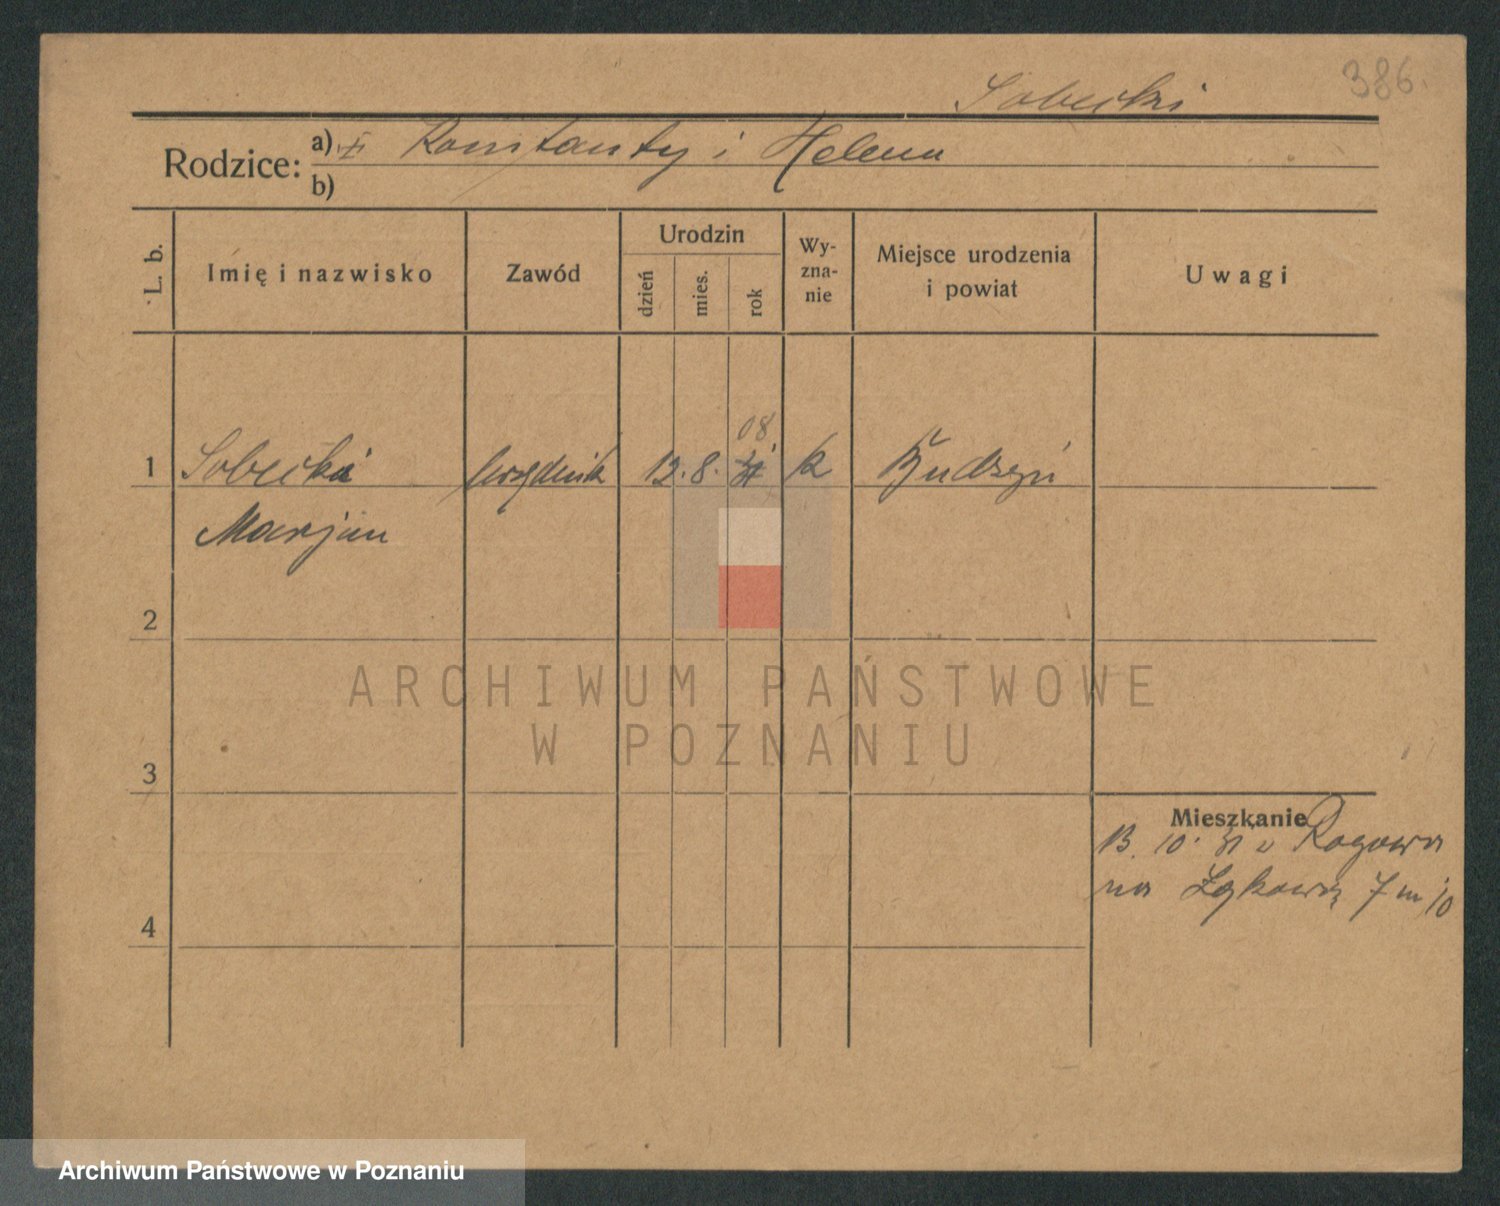 386.
Sobecki
Rodzice: a) Konstanty i Helena
b)
L. b.
Imię i nazwisko
Zawód
Urodzin
dzień
mies.
rok
Wy-
zna-
nie
Miejsce urodzenia
i powiat
Uwagi
08
1 Sobecki urzędnik 12. 8. k Budzyń
Marjan
2
ARCHIWUM PAŃSTWOWE
W POZNANIU
3
Mieszkanie
B. 10. 31 Rogowa
na Łąkową 7 m 10
4
Archiwum Państwowe w Poznaniu